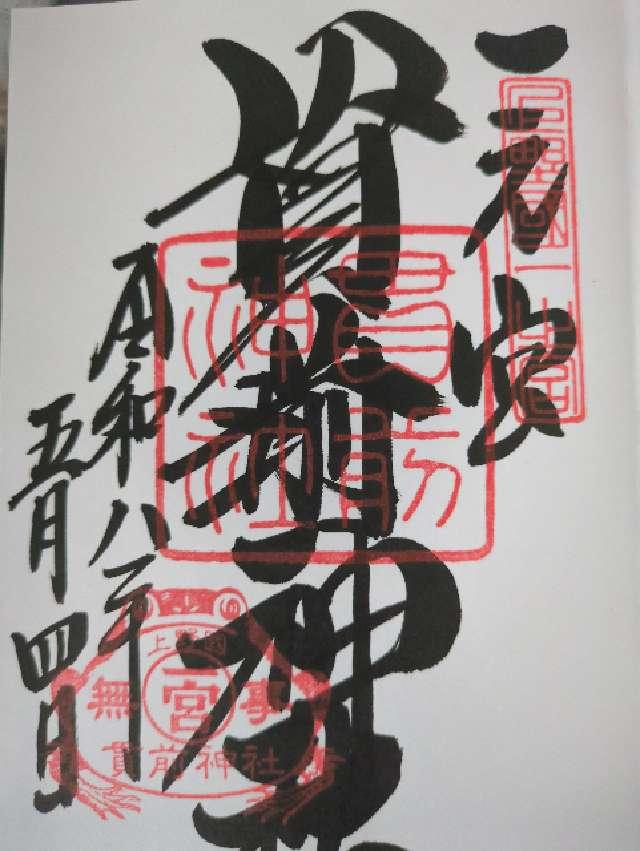 一之宮
上野國一之宮
貫前神社
貫前神社
令和八年
五月四日
上野國
無事
一宮
貫前神社